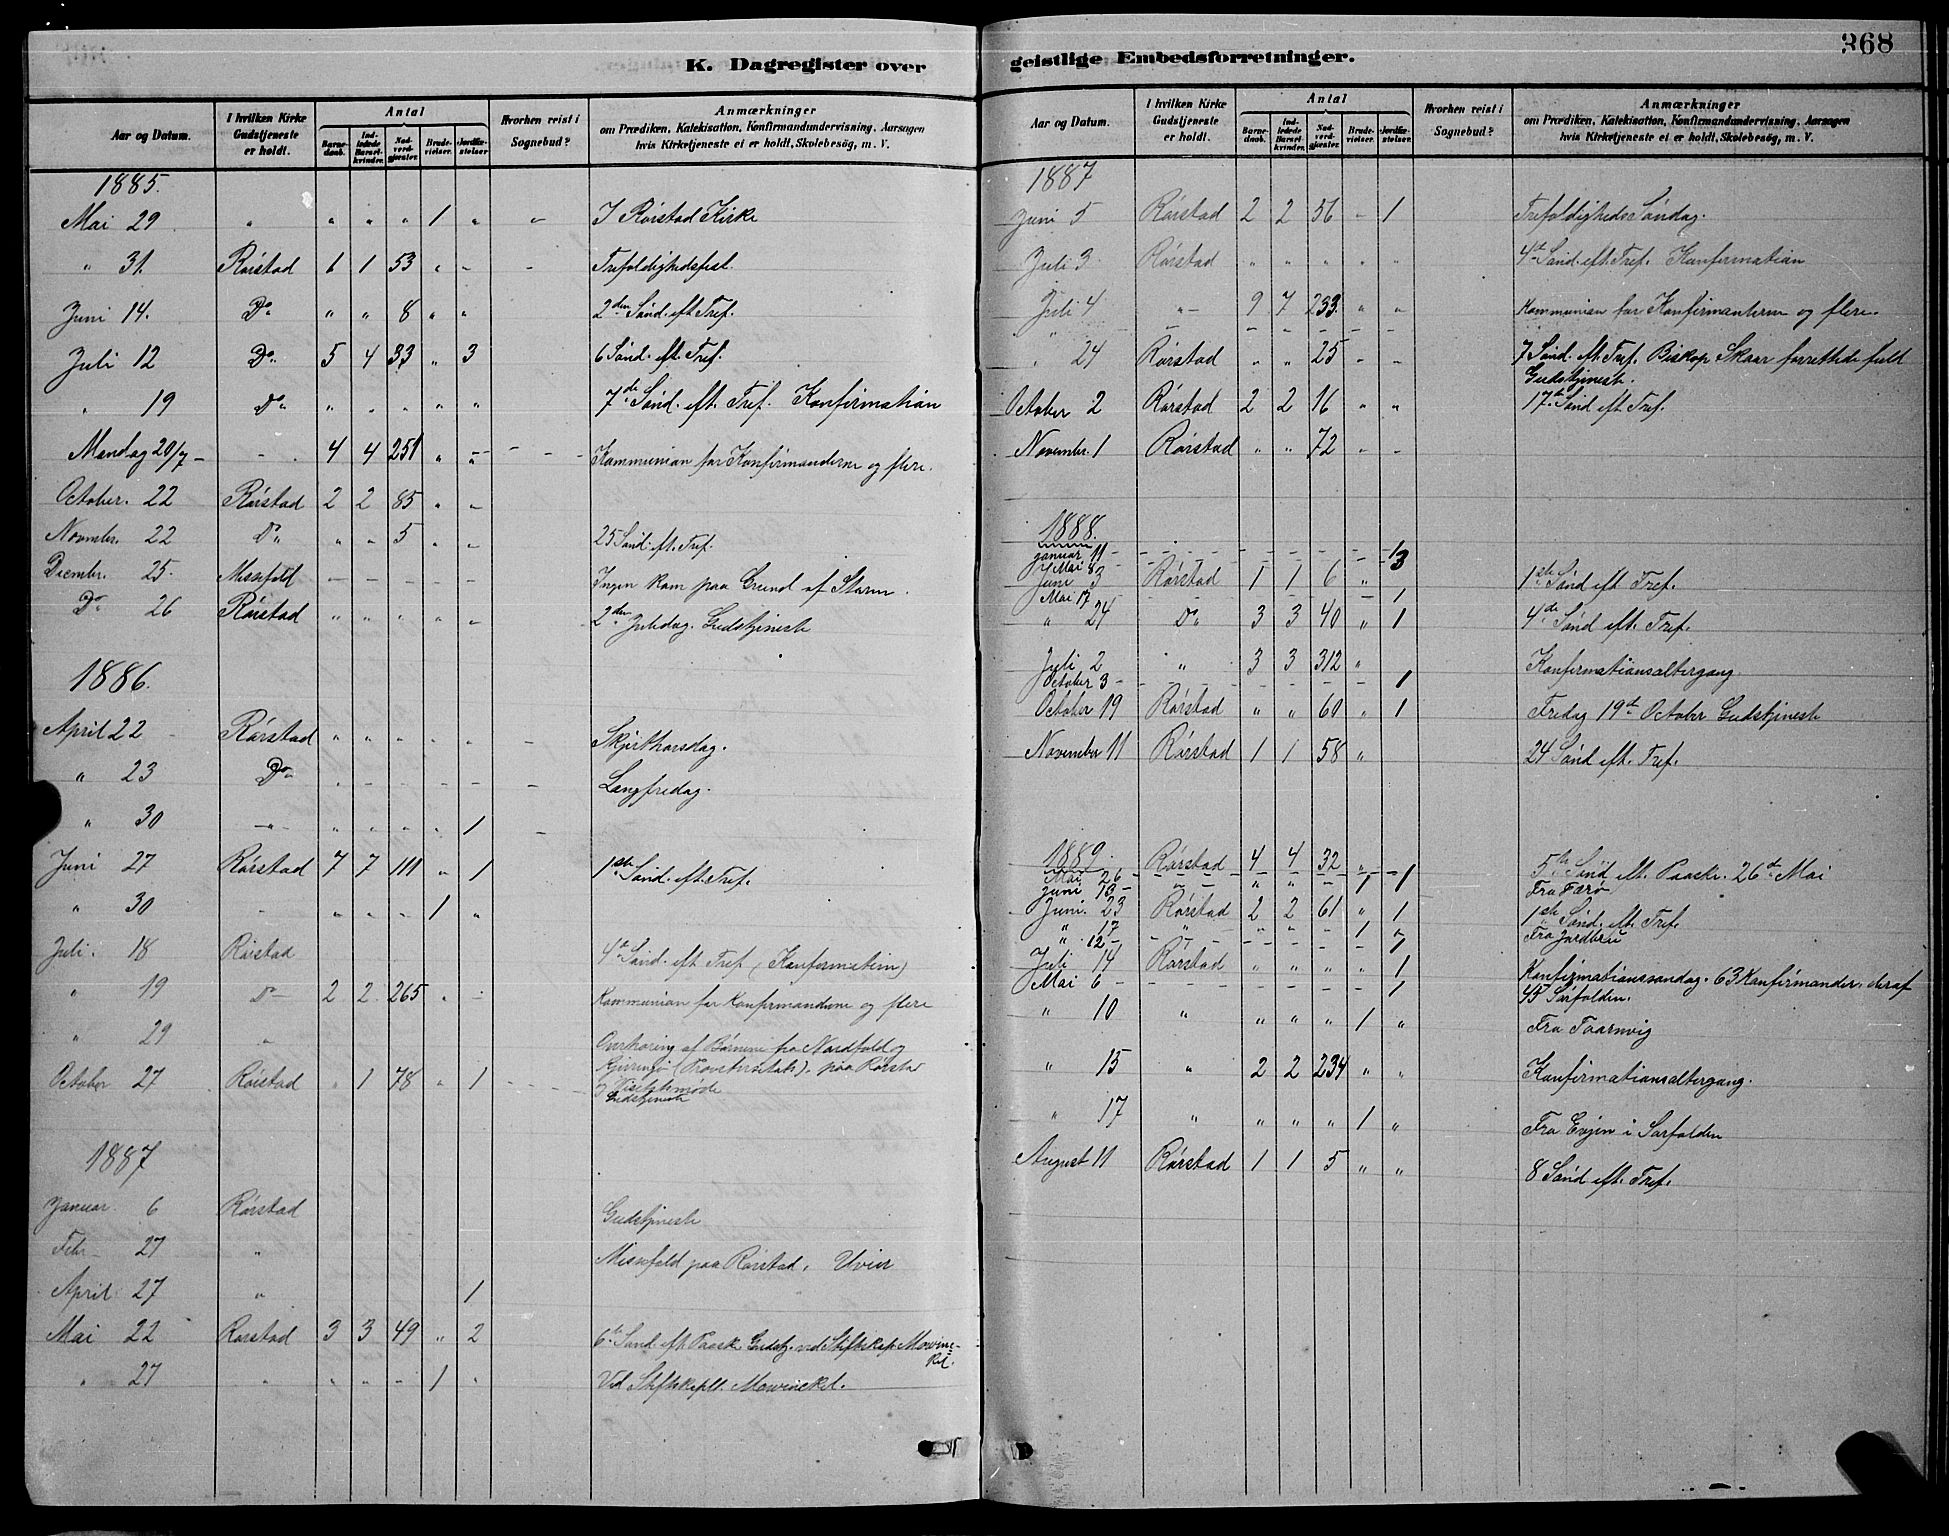 368
K. Dagregister over geistlige Embedsforretninger.
Aar og Datum. | I hvilken Kirke Gudstjeneste er holdt. | Antal | Barnedaab. | Indledede Barselkvinder. | Nadverdgjæster. | Brudevielser. | Jordfæstelser | Hvorhen reist i Sognebud? | Anmærkninger om Prædiken, Katekisation, Konfirmandundervisning, Aarsagen hvis Kirketjeneste ei er holdt, Skolebesög, m. V.
1885.
Mai 29 " " " " 1 " - I Rörstad Kirke
" 31. Rörstad 1 1 53 " - - Trefoldighedsfest.
Juni 14. Do " " 8 " " 2den Sönd. eft. Tref.
Juli 12 Do 5 4 33 " 3 6 Sönd. eft. Tref.
" 19 Do " " " " " 7de Sönd. eft. Tref. Konfirmation
Mandag 20/7 - - 4 4 251 " - - Kommunion for Konfirmanderne og flere.
October. 22 Rörstad 2 2 85 " -
Novmbr. 22 Do " " 5 " - 25 Sönd. eft. Tref.
Decmbr. 25. Missefold - - - - - Ingen kom paa Grund af Storm.
Do 26 Rörstad " " " " - 2den Juledag. Gudstjeneste
1886.
April 22 Rörstad " " " " - - Skjærthorsdag.
" 23 Do - " - - - - Langfredag.
" 30 -"- " " " " 1 -
Juni 27 Rörstad 7 7 111 " 1 1ste Sönd. eft. Tref.
" 30 - " " - 1 "
Juli. 18 Rörstad 4de Sönd. eft Tref. (Konfirmation)
" 19 Do 2 2 265 " - Kommunion for Konfirmanderne og flere
" 29 " Overhöring af Börnene fra Nordfold og
October 27 Rörstad " 1 78 " 1 - - paa Rörstad
Gudstjeneste
1887
Januar 6 Rörstad Gudstjeneste
Febr- 27 " Missefold paa Rörstad. Uveir
April 27 " 1
Mai 22 Rörstad 3 3 49 " 2 6te Sönd. eft Paaske Gudstj. ved Stiftskap. Mowinc-
kel.
" 27 " " " - 1 " Ved Stiftskapll. Mowinckel.
Aar og Datum. | I hvilken Kirke Gudstjeneste er holdt. | Antal | Barnedaab. | Indledede Barselkvinder. | Nadverdgjæster. | Brudevielser. | Jordfæstelser | Hvorhen reist i Sognebud? | Anmærkninger om Prædiken, Katekisation, Konfirmandundervisning, Aarsagen hvis Kirketjeneste ei er holdt, Skolebesög, m. V.
1887
Juni 5 Rörstad 2 2 56 - 1 Trefoldigheds Söndag.
Juli 3 Rörstad " " " " " 4de Sönd. eft. Tref. Konfirmation
Juli 4 "- 9 7 233. " " Kommunion for Konfirmanterne og flere.
" 24 Rörstad " " 25 - - 7 Sönd. eft. Tref. Biskop Skaar forrettede fuld
Gudstjeneste.
October 2 Rörstad 2 2 16 " " 17de Sönd eft Tref.
Novembr. 1 Rörstad " " 72 - -
1888.
Januar 11 - - - - - - 1
Mai 8 3
Juni 3 Rörstad 1 1 6 " 1ste Sönd eft Tref.
Mai 17 - - - - - - 1
" 24 Do 3 3 40 " 1 4de Sönd eft. Tref.
Juli 2 " 3 3 312 " Konfirmationsaltergang.
October 3 - - - - - - 1
October 19 Rörstad " " 60 " 1 Fredag 19de October Gudstjeneste
November 11 Rörstad 1 1 58 " 24 Sönd eft. Tref.
1889. Rörstad 4 4 32 "
Mai 26 - - - - - - 1 5te Sönd eft. Paaske. 26de Mai
Juni 13 - " " " - 1 Fra Færö
Juni. 23 Rörstad 2 2 61 " 1 1ste Sönd. eft. Tref.
" 17 " " " - 1 - Fra Jordbru
" 12 - - - - - - 1
Juli 14 Rörstad " " " " 1 Konfirmationssöndag. 63 Konfirmander, deraf
Mai 6 - - - - - - 1 45 Sörfolden.
" 10 " " " " 1 " Fra Taarnvig
" 15 " 2 2 234 " " Konfirmationsaltergang.
" 17 " " " " 1 " Fra Evjen i Sörfolden
August 11 Rörstad 1 1 5 " " 8 Sönd eft. Tref.